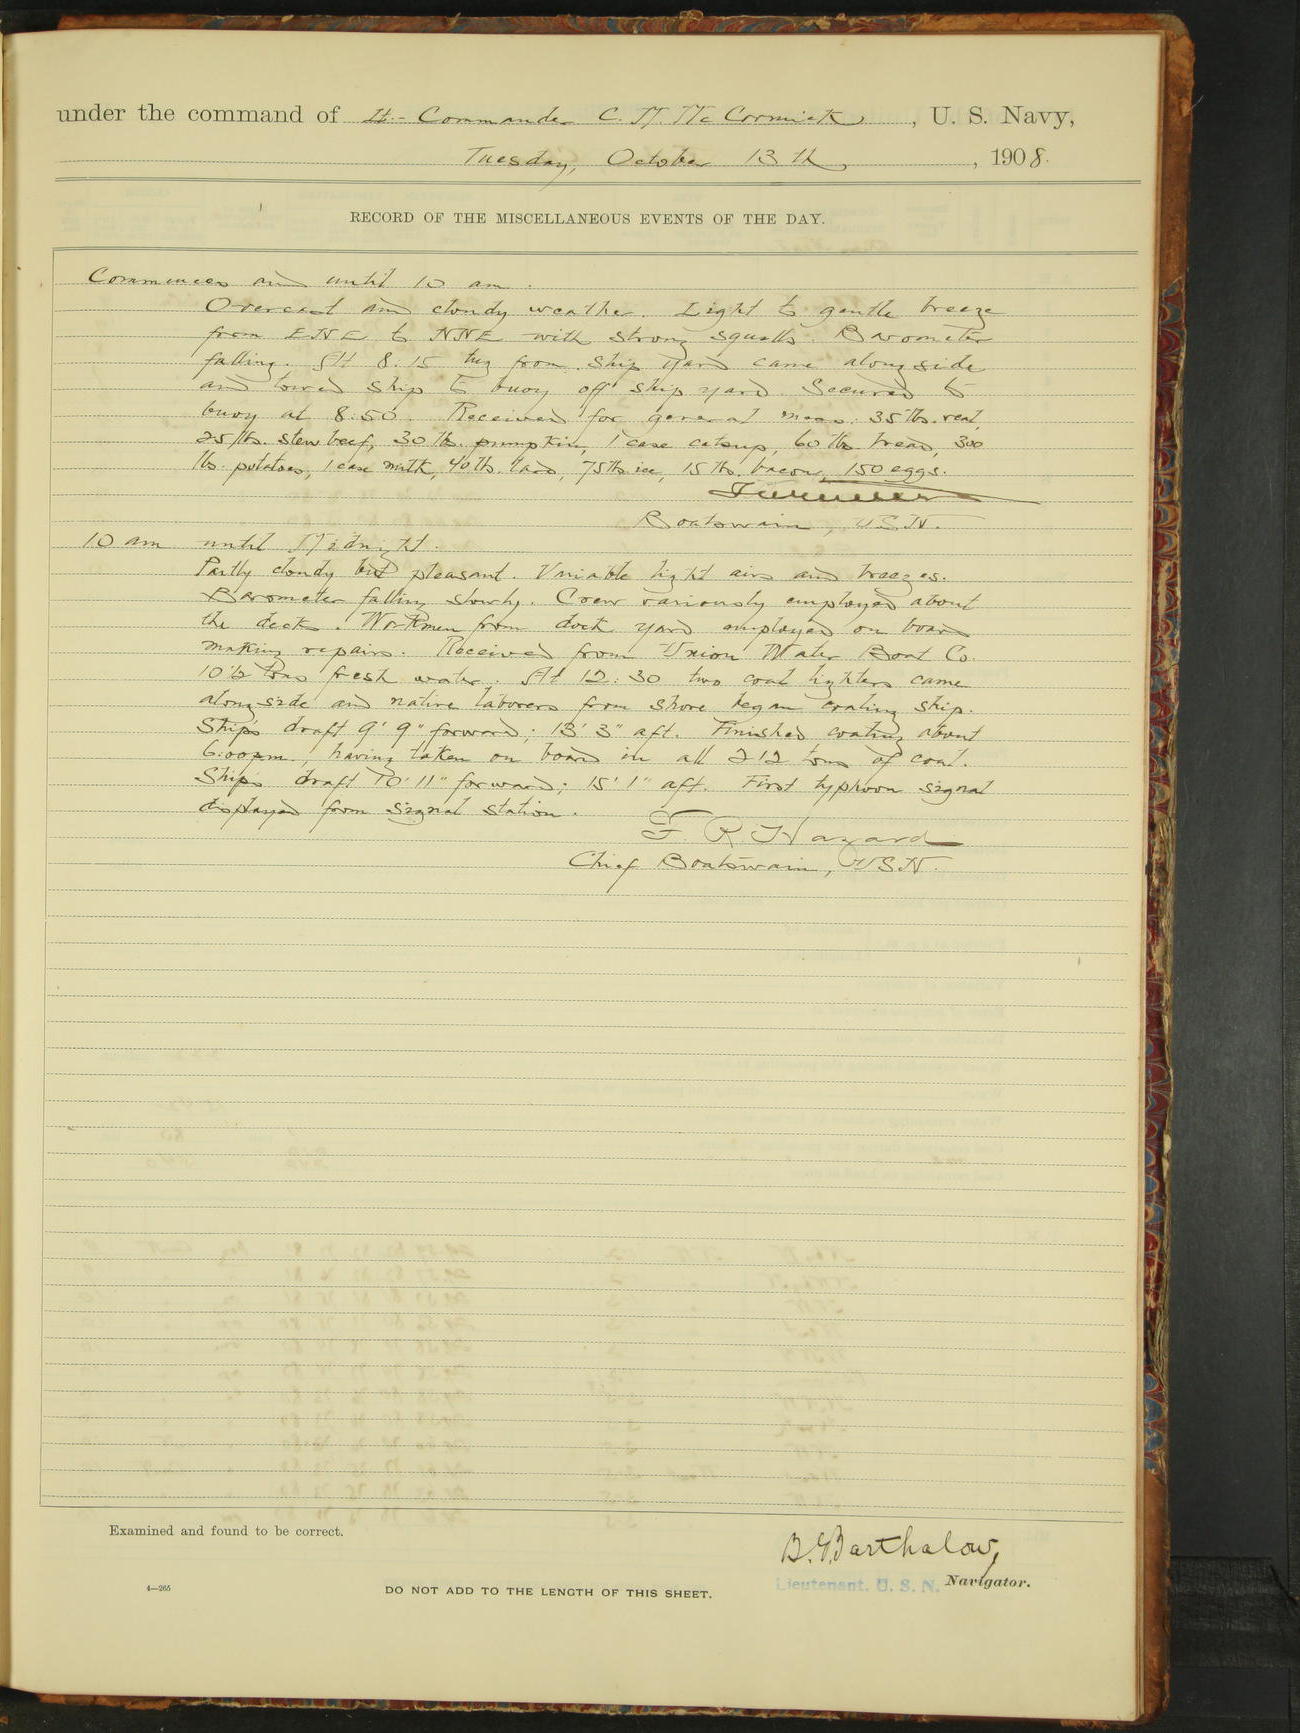 under the command of Lt-Commander C. M. McCormick, U. S. Navy,
Tuesday, October 13th, 1908.
RECORD OF THE MISCELLANEOUS EVENTS OF THE DAY.
Commences and until 10 am.
Overcast and cloudy weather. Light to gentle breeze
from ENE to NNE with strong squalls. Barometer
falling. At 8.15 tug from ship yard came alongside
and towed ship to buoy off ship yard. Secured to
buoy at 8:50. Received for general mess: 35 lbs. veal,
25 lbs. stew beef, 30 lb. pumpkin, 1 case catsup, 60 lbs bread, 300
lbs. potatoes, 1 case milk, 40 lb. lard, 75 lb ice, 15 lb. bacon, 150 eggs.
Boatswain, U.S.N.
10 am until Midnight.
Partly cloudy but pleasant. Variable light airs and breezes.
Barometer falling slowly. Crew variously employed about
the decks. Workmen from dock yard employed on board
making repairs. Received from Union Water Boat Co.
10 1/2 tons fresh water. At 12:30 two coal lighters came
alongside and native laborers from shore began coaling ship.
Ship's draft 9' 9" forward; 13' 3" aft. Finished coaling about
6:00 pm., having taken on board in all 212 tons of coal.
Ship's draft 10' 11" forward; 15' 1" aft. First typhoon signal
displayed from signal station.
F. R. Hazard
Chief Boatswain, USN.
Examined and found to be correct.
B. G. Barthalow,
Lieutenant, U. S. N. Navigator.
4—265
DO NOT ADD TO THE LENGTH OF THIS SHEET.